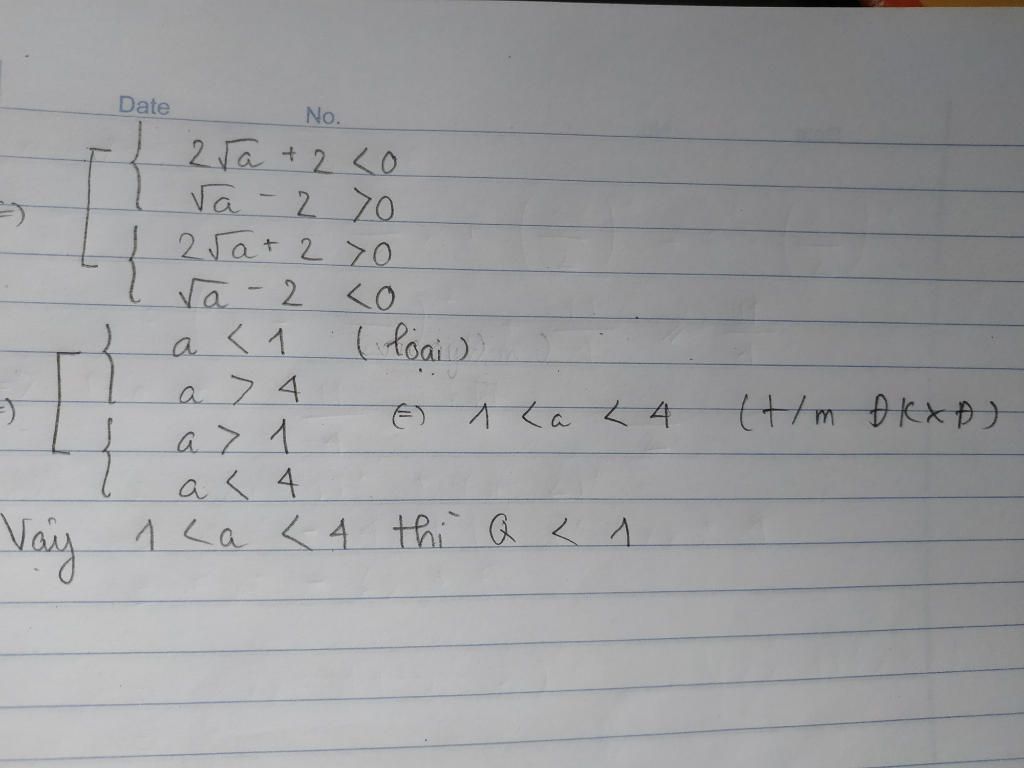 Date No.
2√a + 2 < 0
√a - 2 > 0
=) 2√a + 2 > 0
√a - 2 < 0
a < 1 (loại)
a > 4
=) a > 1 (=) 1 < a < 4 (t/m ĐKXĐ)
a < 4
Vậy 1 < a < 4 thì Q < 1